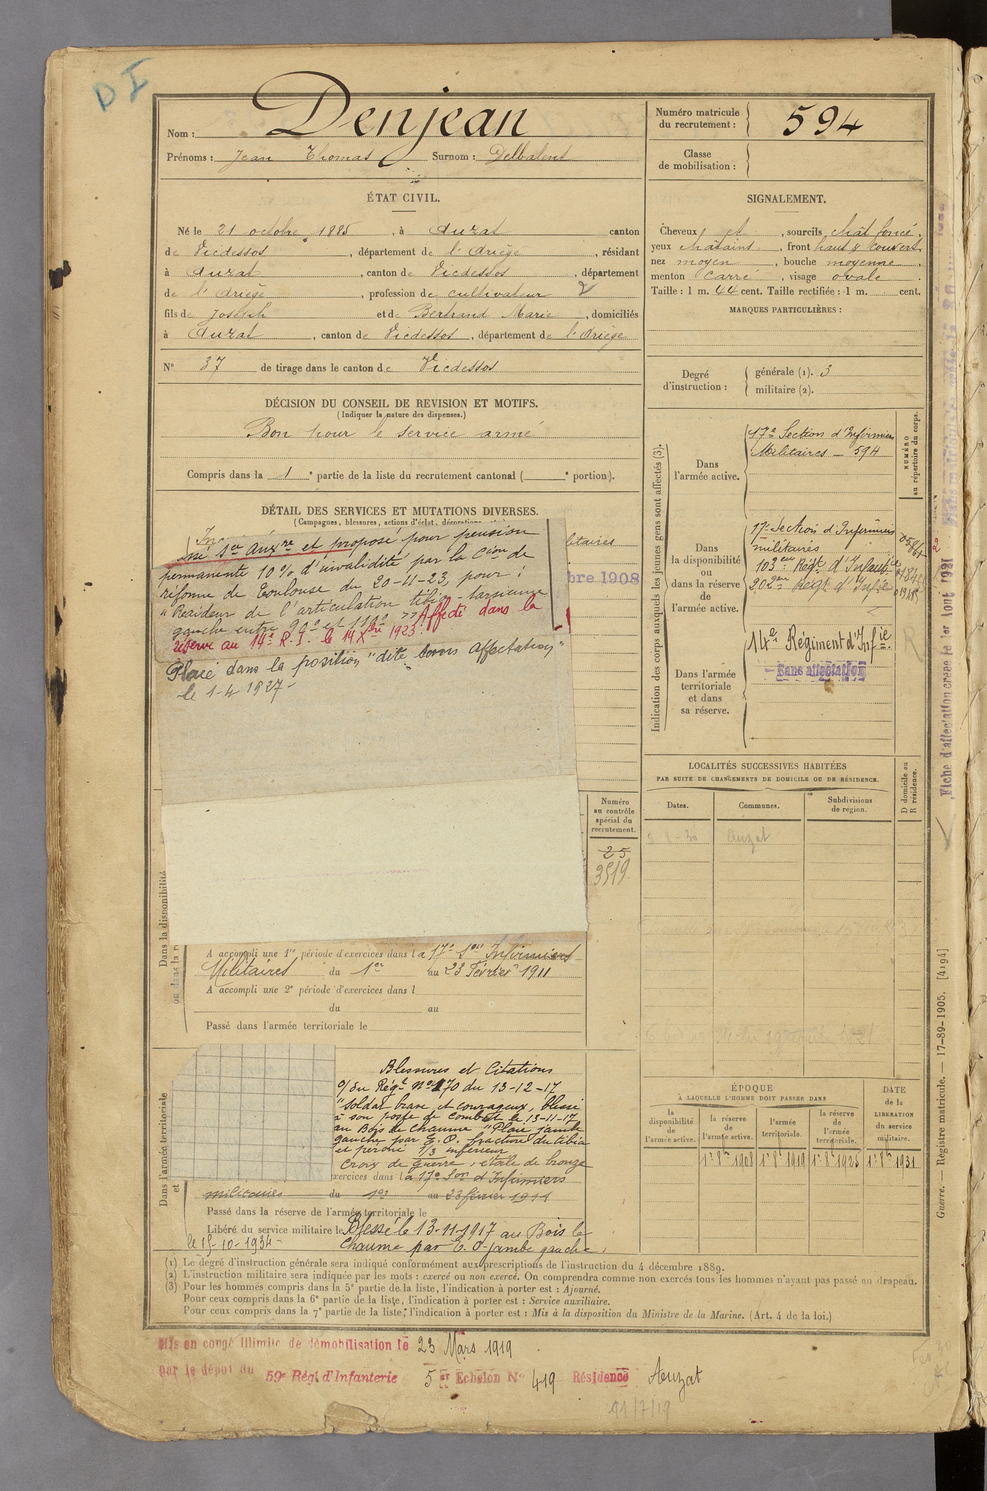 D I
Nom : Denjean
Prénoms : Jean Thomas Surnom : Delbalent
Numéro matricule du recrutement : 594
Classe de mobilisation :
ÉTAT CIVIL.
Né le 21 octobre 1885, à Auzat canton
de Vicdessos, département de l'Ariège, résidant
à Auzat, canton de Vicdessos, département
de l'Ariège, profession de cultivateur
fils de Joseph et de Bertrand Marie, domiciliés
à Auzat, canton de Vicdessos, département de l'Ariège
N° 37 de tirage dans le canton de Vicdessos
SIGNALEMENT.
Cheveux et, sourcils chât foncé,
yeux châtains, front haut & couvert,
nez moyen, bouche moyenne,
menton carré, visage ovale.
Taille : 1 m. 44 cent. Taille rectifiée : 1 m. cent.
MARQUES PARTICULIÈRES :
Degré d'instruction : générale (1). 3
militaire (2).
DÉCISION DU CONSEIL DE REVISION ET MOTIFS.
(Indiquer la nature des dispenses.)
Bon pour le service armé
Compris dans la 1e partie de la liste du recrutement cantonal ( e portion).
DÉTAIL DES SERVICES ET MUTATIONS DIVERSES.
(Campagnes, blessures, actions d'éclat, décorations
Sce Auxre et proposé pour pension
permanente 10% d'invalidité par la Cion de
réforme de Toulouse du 20-11-23, pour :
"Raideur de l'articulation tibio-tarsienne
gauche entre 90° et 110° " Affecté dans la
réserve au 14e R.I. le 14 Xbre 1923
Placé dans la position "dite sans affectation"
le 1-4 1927-
litaires
bre 1908
Indication des corps auxquels les jeunes gens sont affectés (3).
Dans l'armée active.
17e Section d'Infirmiers
Militaires - 594
NUMÉRO au répertoire du corps.
Dans la disponibilité ou dans la réserve de l'armée active.
17e Section d'Infirmiers
militaires
103eu Régt d'Infanterie
202eu Régt d'Infie
Dans l'armée territoriale et dans sa réserve.
14e Régiment d'Infie
Sans affectation
LOCALITÉS SUCCESSIVES HABITÉES
PAR SUITE DE CHANGEMENTS DE DOMICILE OU DE RÉSIDENCE.
Dates. Communes. Subdivisions de région. D domicile ou R résidence.
Auzat
Numéro au contrôle spécial du recrutement.
25
3519
Dans la disponibilité
A accompli une 1re période d'exercices dans la 17e Son Infirmiers
Militaires du 1er au 23 Février 1911
A accompli une 2e période d'exercices dans l
du au
Passé dans l'armée territoriale le
Dans l'armée territoriale et
Blessures et Citations
O/ du Régt N° 170 du 13-12-17
"Soldat brave et courageux, blessé
à son poste de combat le 13-11-17
au Bois le Chaume "Plaie jambe
gauche par E.O. fracture du tibia
et péroné 1/3 inférieur
Croix de guerre, étoile de bronze
exercices dans la 17e Son d'Infirmiers
militaires du 1er au 23 février 1911
Passé dans la réserve de l'armée territoriale le
Libéré du service militaire le Blessé le 13-11-1917 au Bois le
le 15-10-1934- Chaume par E.O. jambe gauche.
ÉPOQUE
À LAQUELLE L'HOMME DOIT PASSER DANS
la disponibilité de l'armée active. la réserve de l'armée active. l'armée territoriale. la réserve de l'armée territoriale.
DATE de la LIBÉRATION du service militaire.
1er 8bre 1908 1er 8bre 1919 1er 8bre 1925 1er 8bre 1931
(1) Le degré d'instruction générale sera indiqué conformément aux prescriptions de l'instruction du 4 décembre 1889.
(2) L'instruction militaire sera indiquée par les mots : exercé ou non exercé. On comprendra comme non exercés tous les hommes n'ayant pas passé au drapeau.
(3) Pour les hommes compris dans la 5e partie de la liste, l'indication à porter est : Ajourné.
Pour ceux compris dans la 6e partie de la liste, l'indication à porter est : Service auxiliaire.
Pour ceux compris dans la 7e partie de la liste, l'indication à porter est : Mis à la disposition du Ministre de la Marine. (Art. 4 de la loi.)
Mis en congé illimité de démobilisation le 23 Mars 1919
par le dépôt du 59e Régt d'Infanterie 5er Echelon N° 419 Résidence Auzat
Fiche d'affectation créée le 1er Août 1921
Guerre. — Registre matricule. — 17-89-1905. [4194]